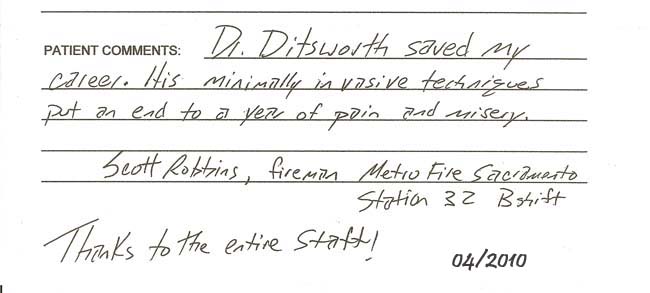 PATIENT COMMENTS: Dr. Ditsworth saved my
career. His minimally invasive techniques
put an end to a year of pain and misery.
Scott Robbins, fireman Metro Fire Sacramento
Station 32 B shift
Thanks to the entire staff!
04/2010